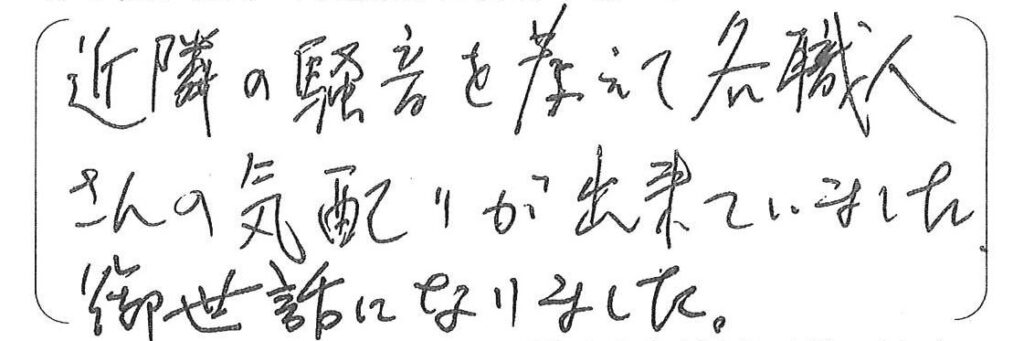 近隣の騒音を考えて各職人
さんの気配りが出来ていました
御世話になりました。